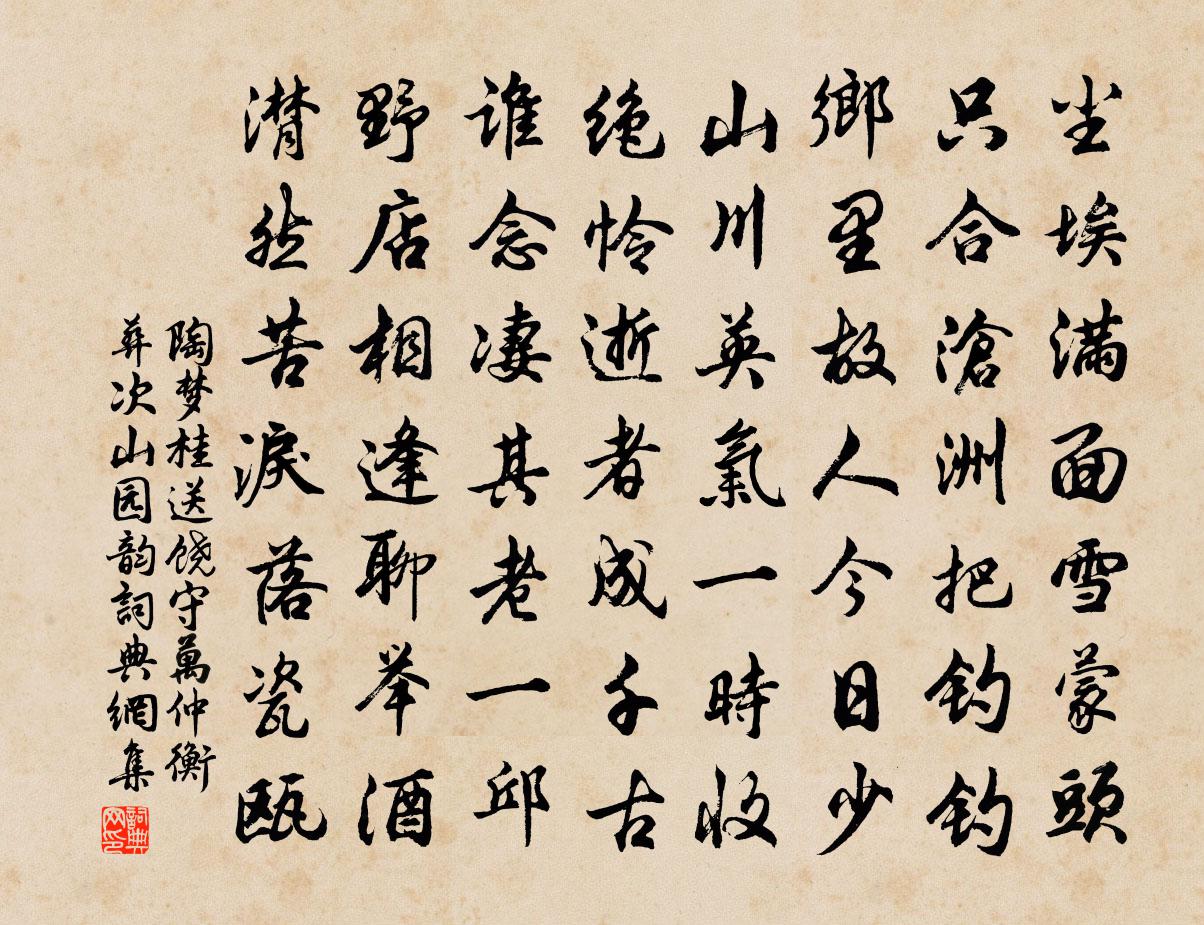 尘埃满面雪蒙头
只合滄洲把钓钩
鄉里故人今日少
山川英氣一時收
绝怜逝者成千古
谁念凄其老一邱
野店相逢聊举酒
潸然苦淚落瓷瓯
陶梦桂送饶守萬仲衡
彛次山园韵詞典網集
詞典
网印